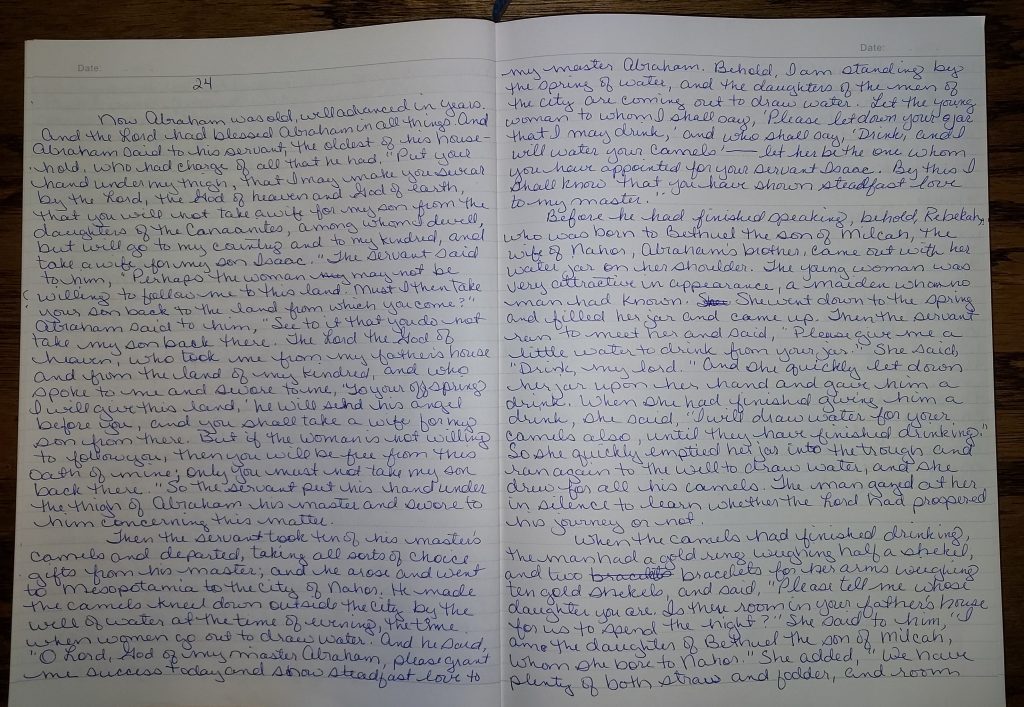 Date:
24
Now Abraham was old, well advanced in years.
And the Lord had blessed Abraham in all things. And
Abraham said to his servant, the oldest of his house-
hold, who had charge of all that he had, "Put your
hand under my thigh, that I may make you swear
by the Lord, the God of heaven and God of earth,
that you will not take a wife for my son from the
daughters of the Canaanites, among whom I dwell,
but will go to my country and to my kindred, and
take a wife for my son Isaac." The servant said
to him, "Perhaps the woman may may not be
willing to follow me to this land. Must I then take
your son back to the land from which you come?"
Abraham said to him, "See to it that you do not
take my son back there. The Lord the God of
heaven, who took me from my father's house
and from the land of my kindred, and who
spoke to me and swore to me, 'To your offspring
I will give this land,' he will send his angel
before you, and you shall take a wife for my
son from there. But if the woman is not willing
to follow you, then you will be free from this
oath of mine; only you must not take my son
back there." So the servant put his hand under
the thigh of Abraham his master and swore to
him concerning this matter.
Then the servant took ten of his master's
camels and departed, taking all sorts of choice
gifts from his master; and he arose and went
to Mesopotamia to the city of Nahor. He made
the camels kneel down outside the city by the
well of water at the time of evening, the time
when women go out to draw water. And he said,
"O Lord, God of my master Abraham, please grant
me success today and show steadfast love to
Date:
my master Abraham. Behold, I am standing by
the spring of water, and the daughters of the men of
the city are coming out to draw water. Let the young
woman to whom I shall say, 'Please let down your jar
that I may drink,' and who shall say, 'Drink, and I
will water your camels' — let her be the one whom
you have appointed for your servant Isaac. By this I
shall know that you have shown steadfast love
to my master.
Before he had finished speaking, behold, Rebekah,
who was born to Bethuel the son of Milcah, the
wife of Nahor, Abraham's brother, came out with her
water jar on her shoulder. The young woman was
very attractive in appearance, a maiden whom no
man had known. She She went down to the spring
and filled her jar and came up. Then the servant
ran to meet her and said, "Please give me a
little water to drink from your jar." She said,
"Drink, my lord." And she quickly let down
her jar upon her hand and gave him a
drink. When she had finished giving him a
drink, she said, "I will draw water for your
camels also, until they have finished drinking."
So she quickly emptied her jar into the trough and
ran again to the well to draw water, and she
drew for all his camels. The man gazed at her
in silence to learn whether the Lord had prospered
his journey or not.
When the camels had finished drinking,
the man had a gold ring weighing half a shekel,
and two bracelets bracelets for her arms weighing
ten gold shekels, and said, "Please tell me whose
daughter you are. Is there room in your father's house
for us to spend the night?" She said to him, "I
am the daughter of Bethuel the son of Milcah,
whom she bore to Nahor." She added, "We have
plenty of both straw and fodder, and room